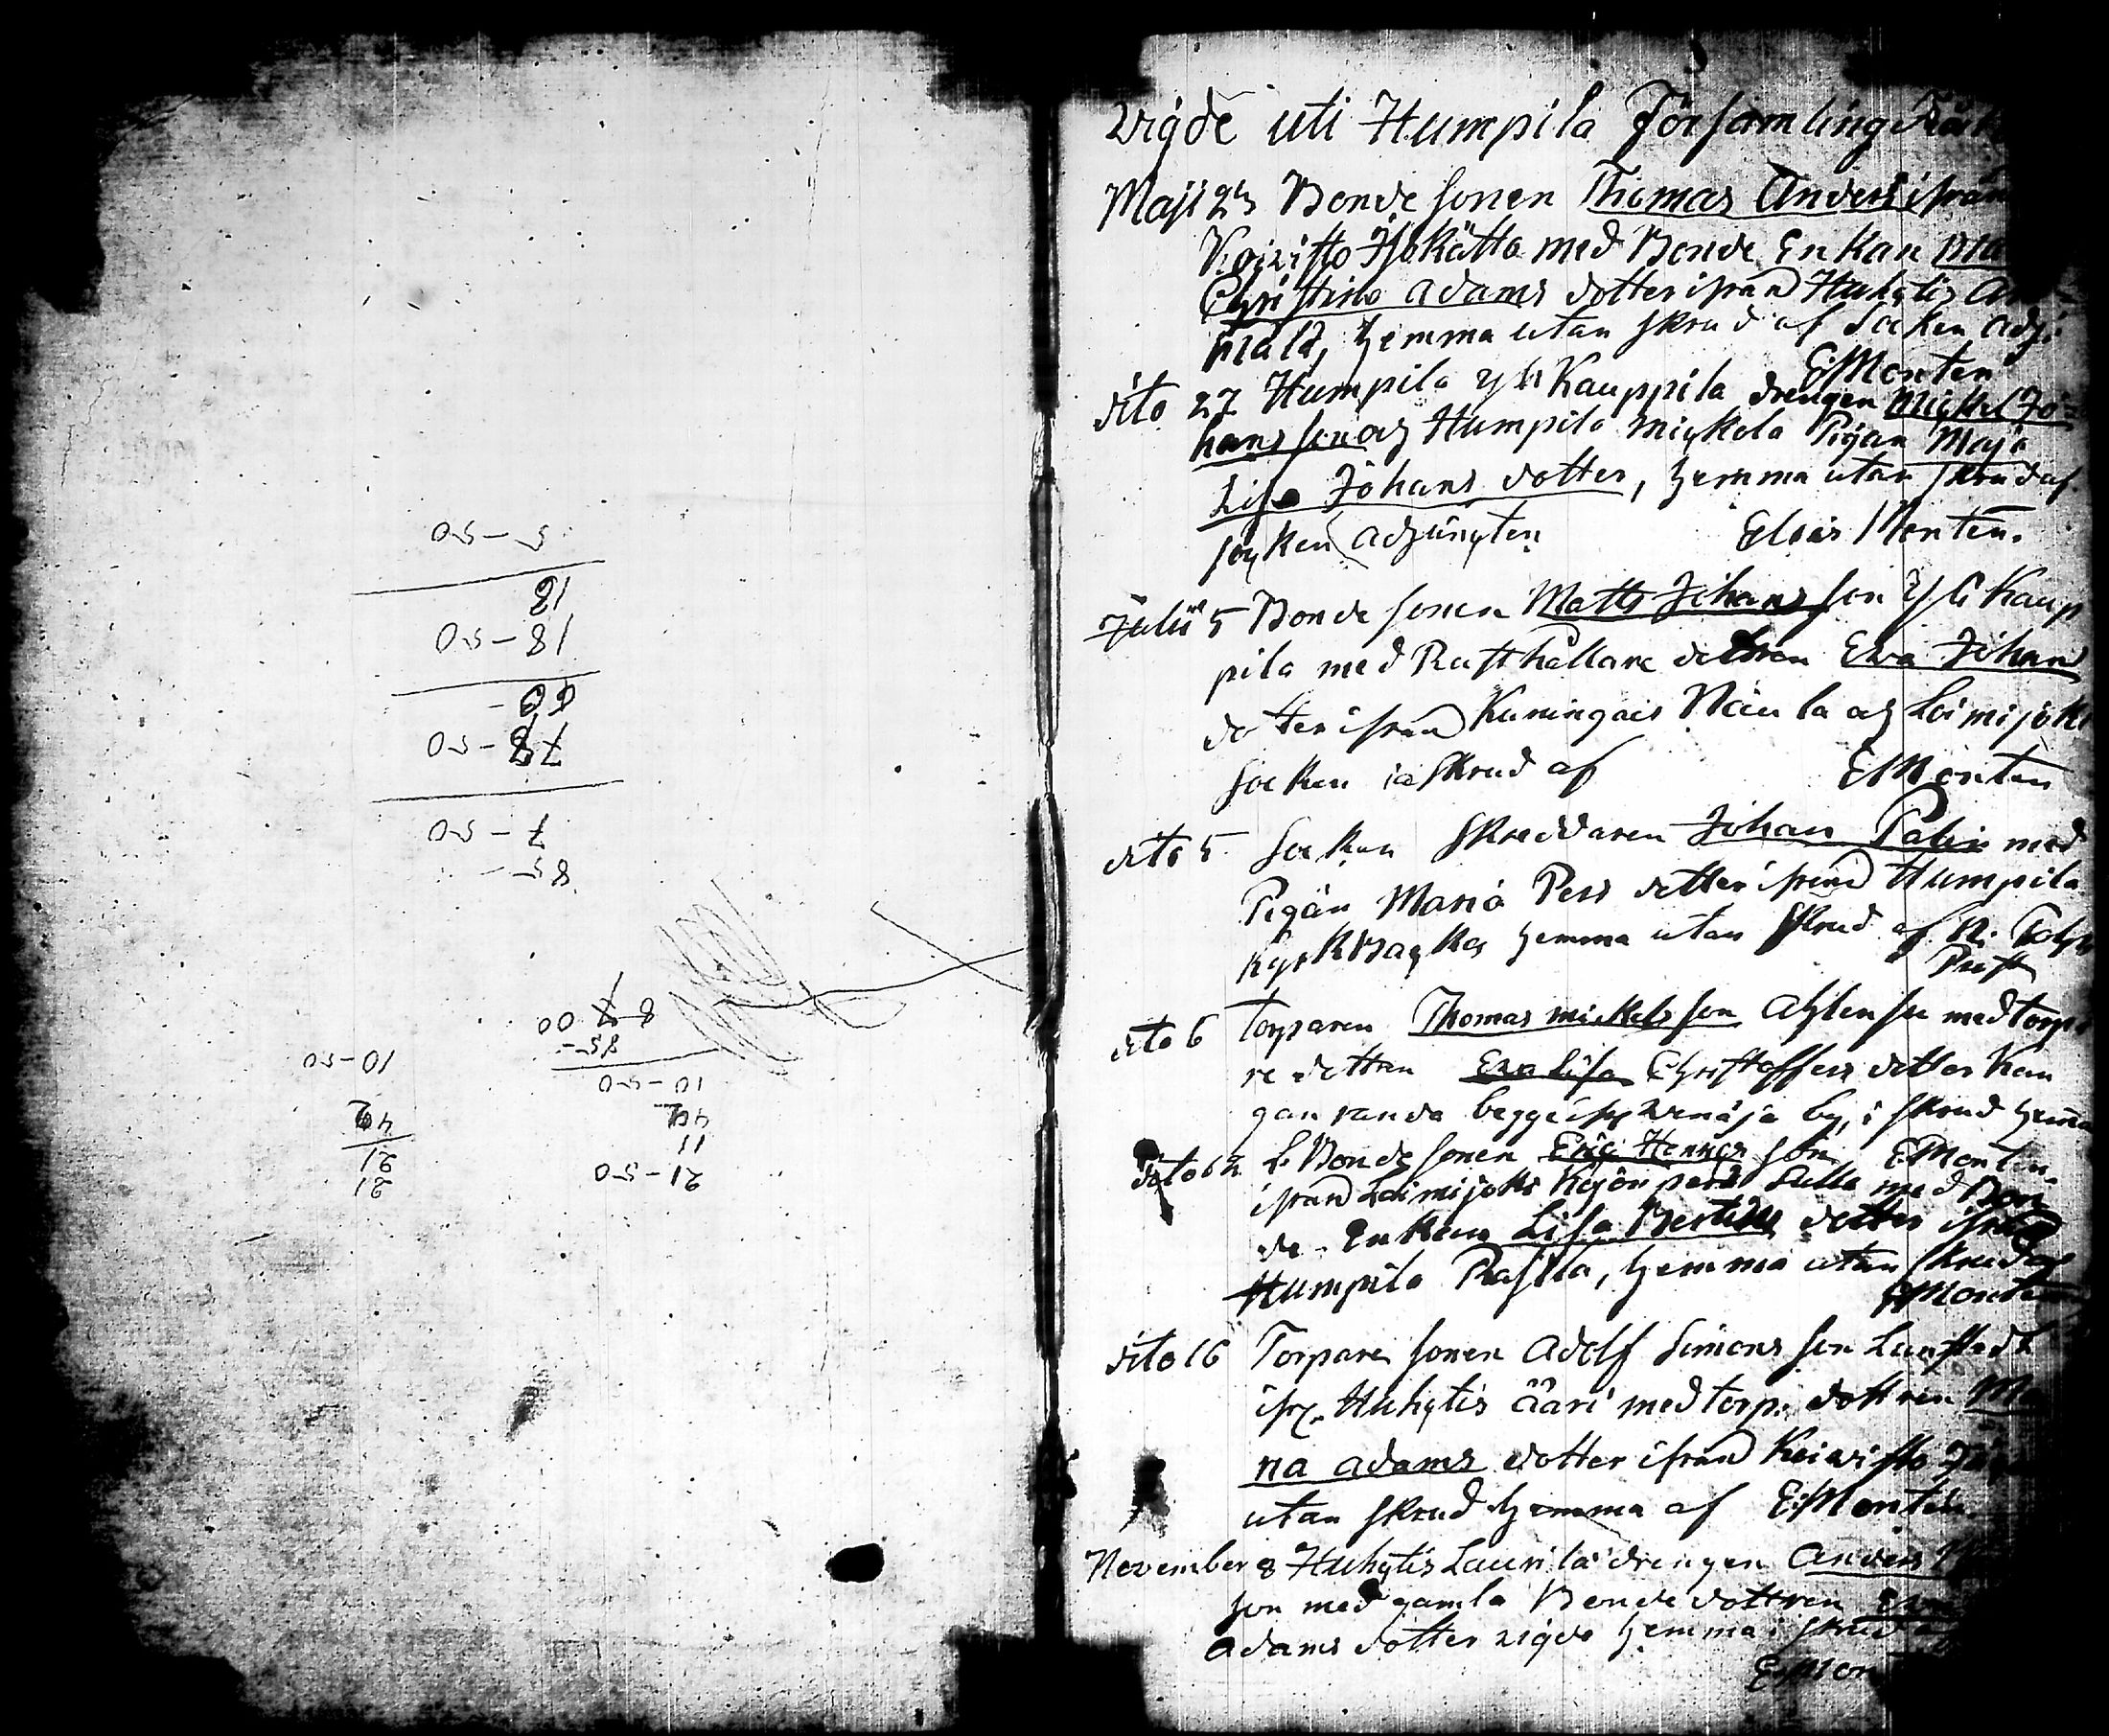 5-50
18
18-50
60-
78-50
7-50
-58
8 7 00
-58
10-50
10-50
42
42
11
21
21
21-50
Vigde uti Humpila Församling
Maji 25 Bonde sonen Thomas Anders ifrån
Koivisto Isokätto med Bonde Enkan Ma
Christina Adams dotter ifrån Huhgtis
hemma utan skrud af Socken Adj:
EMonten
dito 27 Humpila Yli Kauppila drengen Michel Jo=
hans son och Humpila Mickola Pigan Maja
Lisa Johans dotter, hemma utan skrud af
sockens Adjuncten Elias Monten.
Julii 5 Bonde sonen Matts Johans son Yli Kaup
pila med Rusthållare dottren Eva Johans
dotter ifrån Kuningais Näula och Loimijoki
Socken i skrud af EMonten
dito 5 Socken Skreddaren Johan Palin med
Pigan Maria Pers dotter ifrån Humpila
Kyrkbacka hemma utan skrud af N.
Prest
dito 6 Torparen Thomas Mickels son Ahlensu med torpa
re dottren Eva Lisa Christoffers dotter Kan
gan randa begge ifrån Venäja by, i skrud hemma
EMonten
dito 12 L. Bonde sonen Eric Henrics son
ifrån Loimijoki Kojonperä Sulla med Bon
de Enkan Lisa Bertils dotter ifrån
Humpila Rasila, hemma utan skrud af
EMonten
dito 16 Torpare sonen Adolf Simons son Lanstedt
ifr. Huhgtis ääri med torp. dottren Ma
na Adams dotter ifrån Koivisto
utan skrud hemma af E:Monten.
November 8 Huhgtis Laurila drengen Anders
son med gamla Bonde dottren
Adams dotter vigde hemma i skrud
EMon